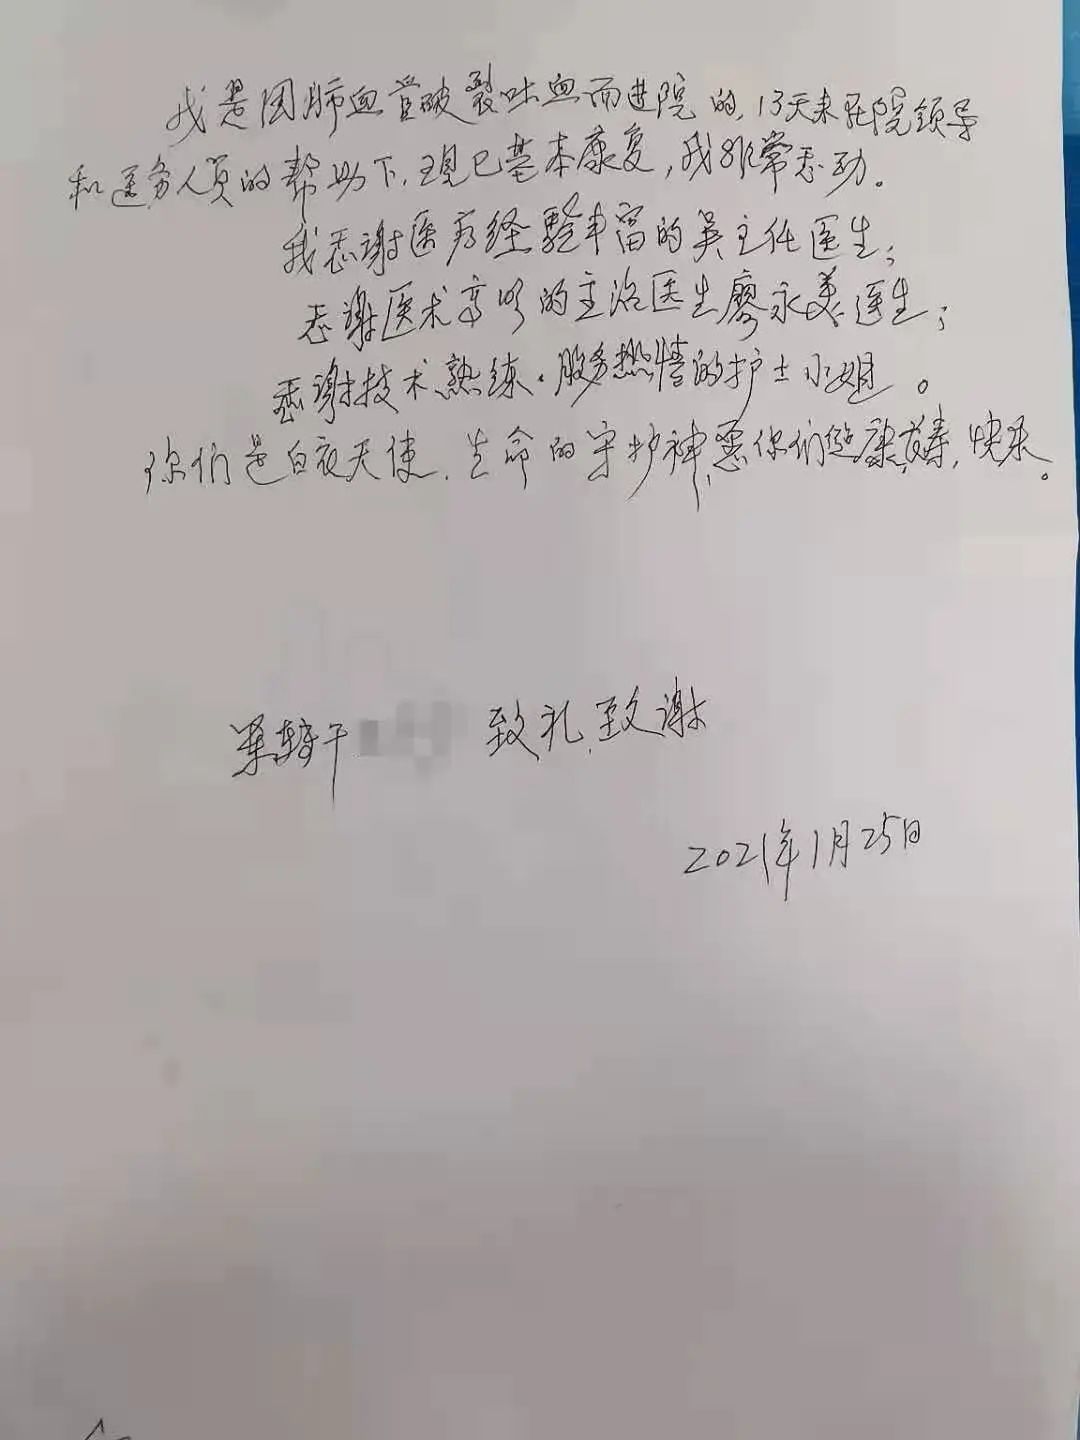 我是因肺血管破裂吐血而进院的，13天来在院领导
和医务人员的帮助下，现已基本康复，我非常感动。
我感谢医疗经验丰富的吴主任医生；
感谢医术高明的主治医生廖永美医生；
感谢技术熟练、服务热情的护士小姐。
你们是白衣天使，生命的守护神，愿你们健康长寿，快乐。
致礼，致谢
2021年1月25日